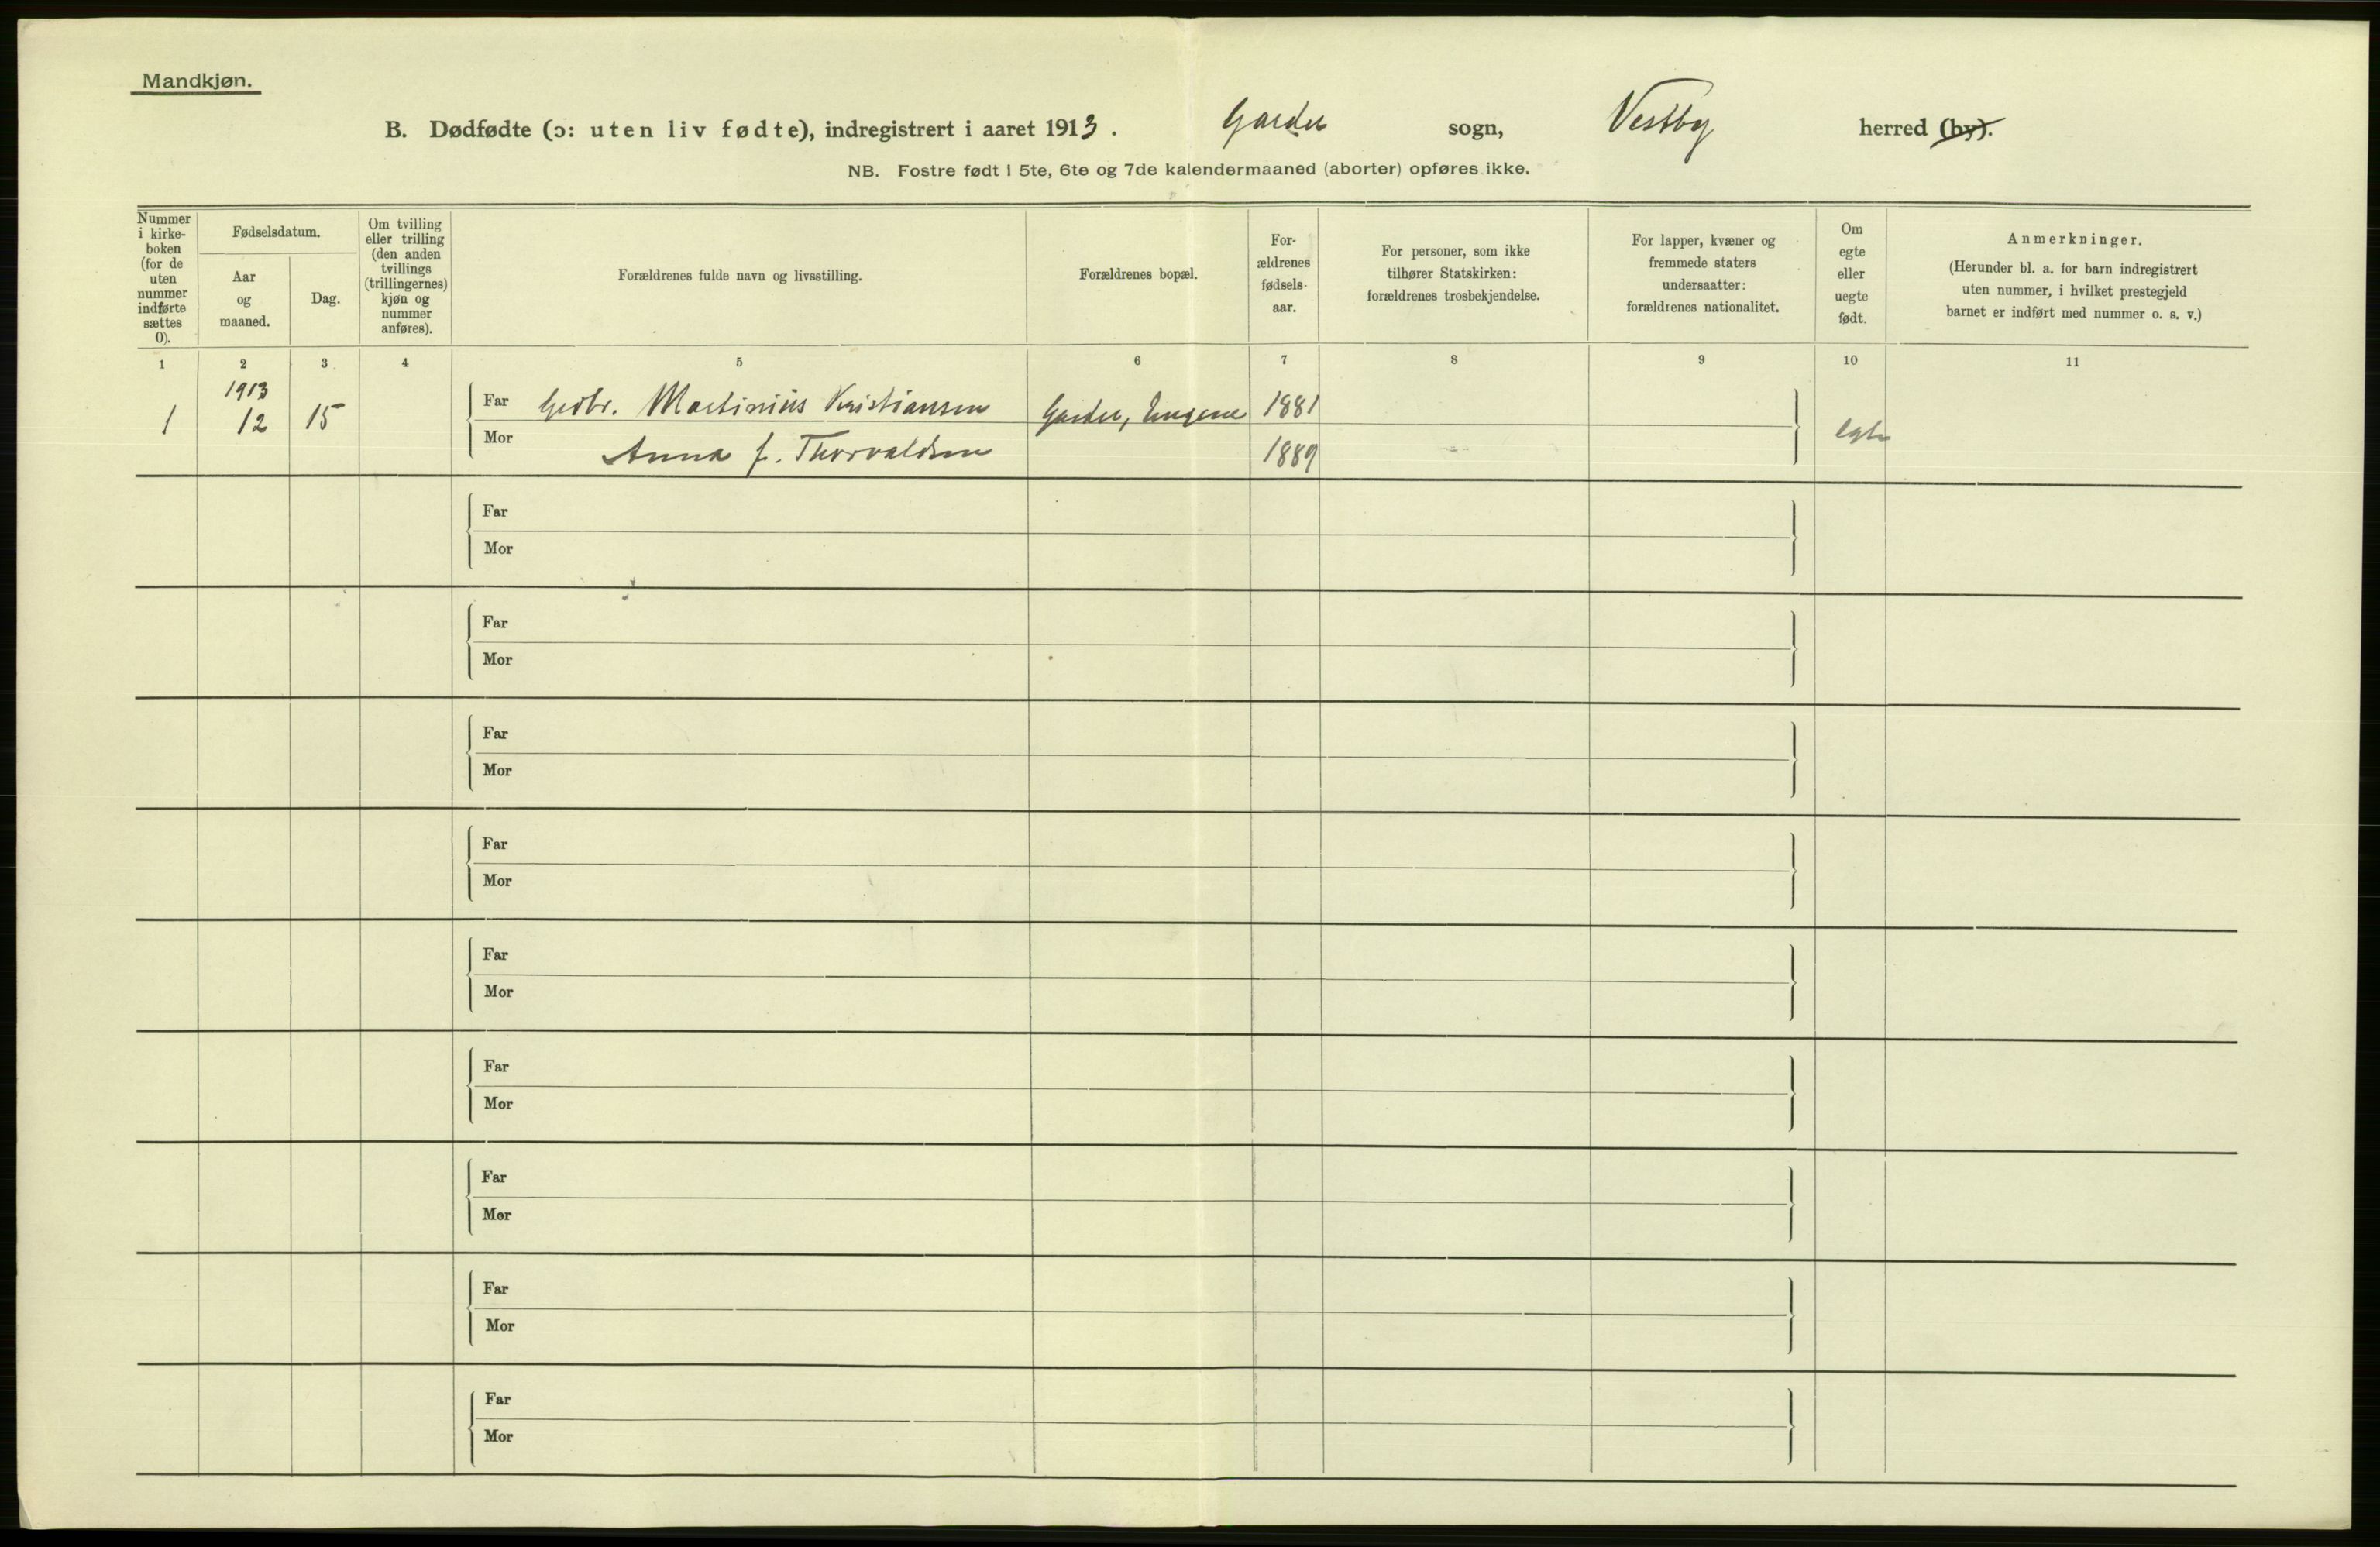 Mandkjøn.
B. Dødfødte (ɔ: uten liv fødte), indregistrert i aaret 1913. Garder sogn, Vestby herred (by).
NB. Fostre født i 5te, 6te og 7de kalendermaaned (aborter) opføres ikke.
Nummer i kirke-boken (for de uten nummer indførte sættes 0).
Fødselsdatum.
Aar og maaned.
Dag.
Om tvilling eller trilling (den anden tvillings (trillingernes) kjøn og nummer anføres).
Forældrenes fulde navn og livsstilling.
Forældrenes bopæl.
For-ældrenes fødsels-aar.
For personer, som ikke tilhører Statskirken: forældrenes trosbekjendelse.
For lapper, kvæner og fremmede staters undersaatter: forældrenes nationalitet.
Om egte eller uegte født.
Anmerkninger.
(Herunder bl. a. for barn indregistrert uten nummer, i hvilket prestegjeld barnet er indført med nummer o. s. v.)
1 2 3 4 5 6 7 8 9 10 11
1913
1 12 15 Far Martinius Kristiansen Garder, 1881
Mor Anna f. Thorvaldsen 1889 egte
Far
Mor
Far
Mor
Far
Mor
Far
Mor
Far
Mor
Far
Mor
Far
Mor
Far
Mor
Far
Mor